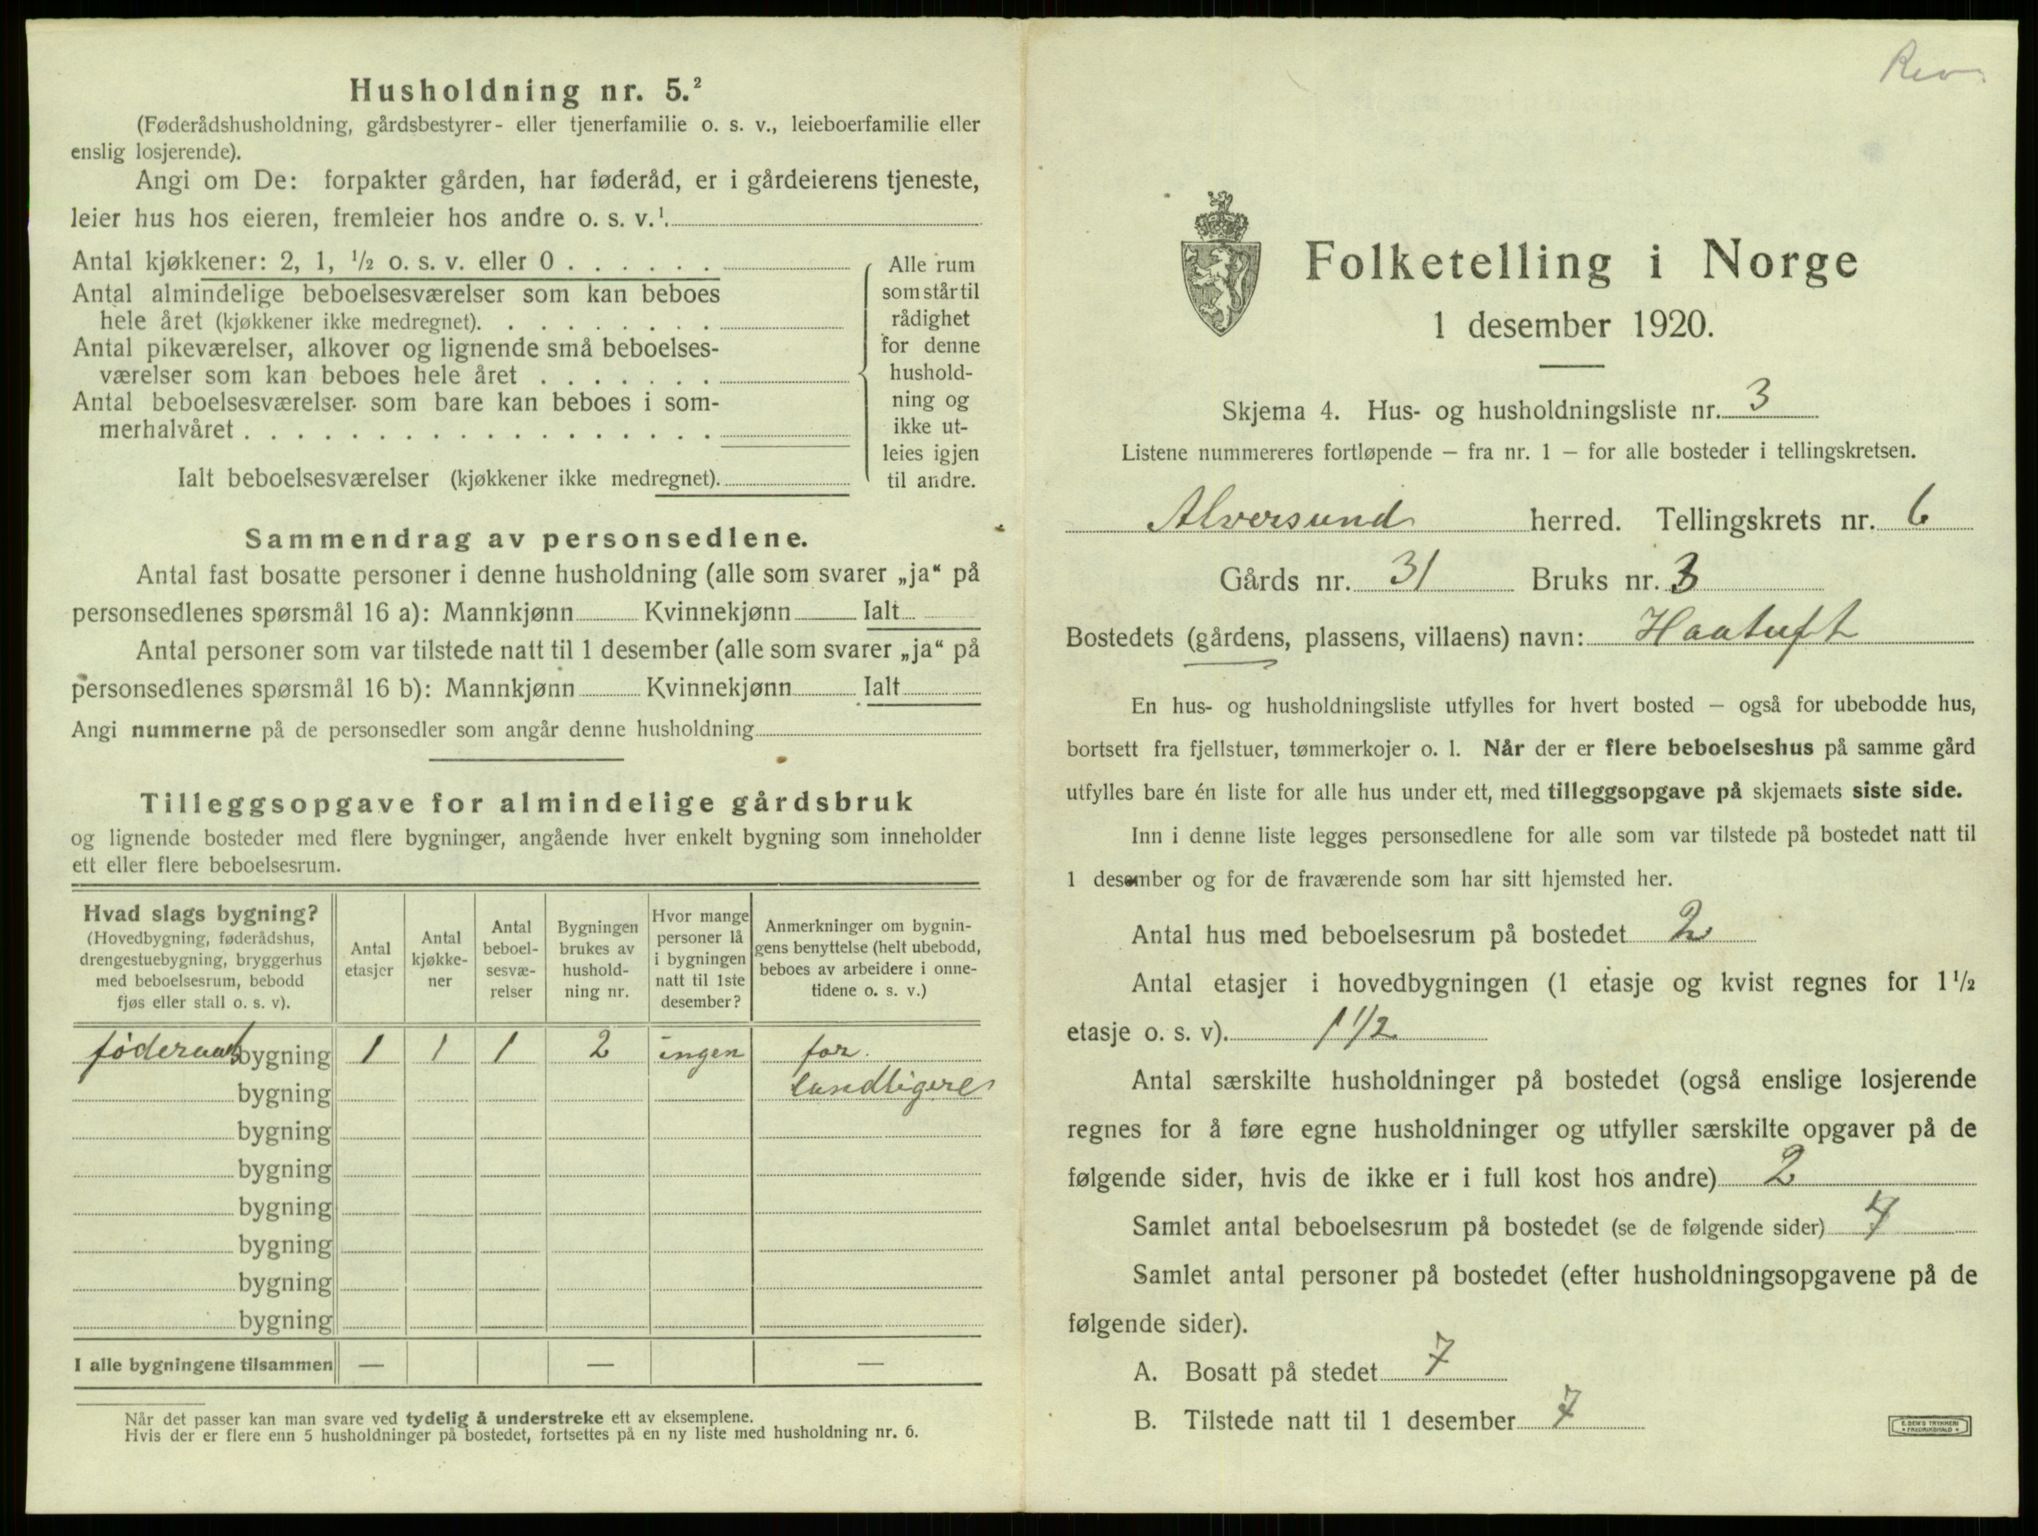 Husholdning nr. 5.²
(Føderådshusholdning, gårdsbestyrer- eller tjenerfamilie o. s. v., leieboerfamilie eller
enslig losjerende).
Angi om De: forpakter gården, har føderåd, er i gårdeierens tjeneste,
leier hus hos eieren, fremleier hos andre o. s. v.¹.
Antal kjøkkener: 2, 1, ½ o. s. v. eller 0 . . . . . .
Antal almindelige beboelsesværelser som kan beboes
hele året (kjøkkener ikke medregnet). . . . . . . . .
Antal pikeværelser, alkover og lignende små beboelses-
værelser som kan beboes hele året . . . . . . .
Antal beboelsesværelser som bare kan beboes i som-
merhalvåret . . . . . . . . . . . . . . . . . .
Ialt beboelsesværelser (kjøkkener ikke medregnet).
Alle rum
som står til
rådighet
for denne
hushold-
ning og
ikke ut-
leies igjen
til andre.
Sammendrag av personsedlene.
Antal fast bosatte personer i denne husholdning (alle som svarer „ja“ på
personsedlenes spørsmål 16 a): Mannkjønn Kvinnekjønn Ialt
Antal personer som var tilstede natt til 1 desember (alle som svarer „ja“ på
personsedlenes spørsmål 16 b): Mannkjønn Kvinnekjønn Ialt
Angi nummerne på de personsedler som angår denne husholdning
Tilleggsopgave for almindelige gårdsbruk
og lignende bosteder med flere bygninger, angående hver enkelt bygning som inneholder
ett eller flere beboelsesrum.
Hvad slags bygning?
(Hovedbygning, føderådshus,
drengestuebygning, bryggerhus
med beboelsesrum, bebodd
fjøs eller stall o. s. v).
Antal
etasjer
Antal
kjøkke-
ner
Antal
beboel-
sesvæ-
relser
Bygningen
brukes av
hushold-
ning nr.
Hvor mange
personer lå
i bygningen
natt til 1ste
desember?
Anmerkninger om bygnin-
gens benyttelse (helt ubebodd,
beboes av arbeidere i onne-
tidene o. s. v.)
bygning 1 1 1 2 ingen for
bygning
bygning
bygning
bygning
bygning
bygning
bygning
I alle bygningene tilsammen — — —
Når det passer kan man svare ved tydelig å understreke ett av eksemplene.
Hvis der er flere enn 5 husholdninger på bostedet, fortsettes på en ny liste med husholdning nr. 6.
Rev.
Folketelling i Norge
1 desember 1920.
Skjema 4. Hus- og husholdningsliste nr. 3
Listene nummereres fortløpende — fra nr. 1 — for alle bosteder i tellingskretsen.
Alversund herred. Tellingskrets nr. 6
Gårds nr. 31 Bruks nr. 3
Bostedets (gårdens, plassens, villaens) navn: Haatuft
En hus- og husholdningsliste utfylles for hvert bosted — også for ubebodde hus,
bortsett fra fjellstuer, tømmerkojer o. l. Når der er flere beboelseshus på samme gård
utfylles bare én liste for alle hus under ett, med tilleggsopgave på skjemaets siste side.
Inn i denne liste legges personsedlene for alle som var tilstede på bostedet natt til
1 desember og for de fraværende som har sitt hjemsted her.
Antal hus med beboelsesrum på bostedet 2
Antal etasjer i hovedbygningen (1 etasje og kvist regnes for 1½
etasje o. s. v). 1 1/2
Antal særskilte husholdninger på bostedet (også enslige losjerende
regnes for å føre egne husholdninger og utfyller særskilte opgaver på de
følgende sider, hvis de ikke er i full kost hos andre) 2
Samlet antal beboelsesrum på bostedet (se de følgende sider)
Samlet antal personer på bostedet (efter husholdningsopgavene på de
følgende sider).
A. Bosatt på stedet 7
B. Tilstede natt til 1 desember 7
E. SEM'S TRYKKERI
FREDRIKSHALD